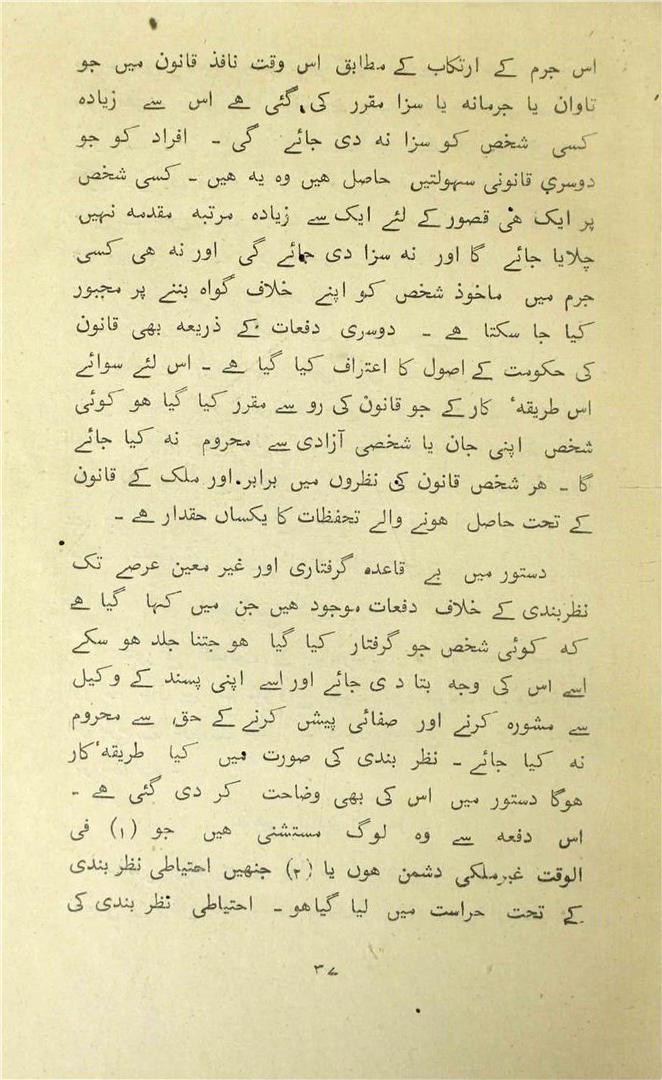 اس جرم کے ارتکاب کے مطابق اس وقت نافذ قانون میں جو
تاوان یا جرمانہ یا سزا مقرر کی گئی ھے اس سے زیادہ
کسی شخص کو سزا نہ دی جائے گی ۔ افراد کو جو
دوسری قانونی سہولتیں حاصل ھیں وہ یہ ھیں ۔ کسی شخص
پر ایک ھی قصور کے لئے ایک سے زیادہ مرتبہ مقدمہ نہیں
چلایا جائے گا اور نہ سزا دی جائے گی اور نہ ھی کسی
جرم میں ماخوذ شخص کو اپنے خلاف گواہ بننے پر مجبور
کیا جا سکتا ھے ۔ دوسری دفعات کے ذریعہ بھی قانون
کی حکومت کے اصول کا اعتراف کیا گیا ھے ۔ اس لئے سوائے
اس طریقہٴ کار کے جو قانون کی رو سے مقرر کیا گیا ھو کوئی
شخص اپنی جان یا شخصی آزادی سے محروم نہ کیا جائے
گا ۔ ھر شخص قانون کی نظروں میں برابر اور ملک کے قانون
کے تحت حاصل ھونے والے تحفظات کا یکساں حقدار ھے ۔
دستور میں بے قاعدہ گرفتاری اور غیر معین عرصے تک
نظربندی کے خلاف دفعات موجود ھیں جن میں کہا گیا ھے
کہ کوئی شخص جو گرفتار کیا گیا ھو جتنا جلد ھو سکے
اسے اس کی وجہ بتا دی جائے اور اسے اپنی پسند کے وکیل
سے مشورہ کرنے اور صفائی پیش کرنے کے حق سے محروم
نہ کیا جائے ۔ نظر بندی کی صورت میں کیا طریقہٴ کار
ھوگا دستور میں اس کی بھی وضاحت کر دی گئی ھے ۔
اس دفعہ سے وہ لوگ مستثنی ھیں جو (۱) فی
الوقت غیرملکی دشمن ھوں یا (۲) جنھیں احتیاطی نظر بندی
کے تحت حراست میں لیا گیاھو ۔ احتیاطی نظر بندی کی
۳۷